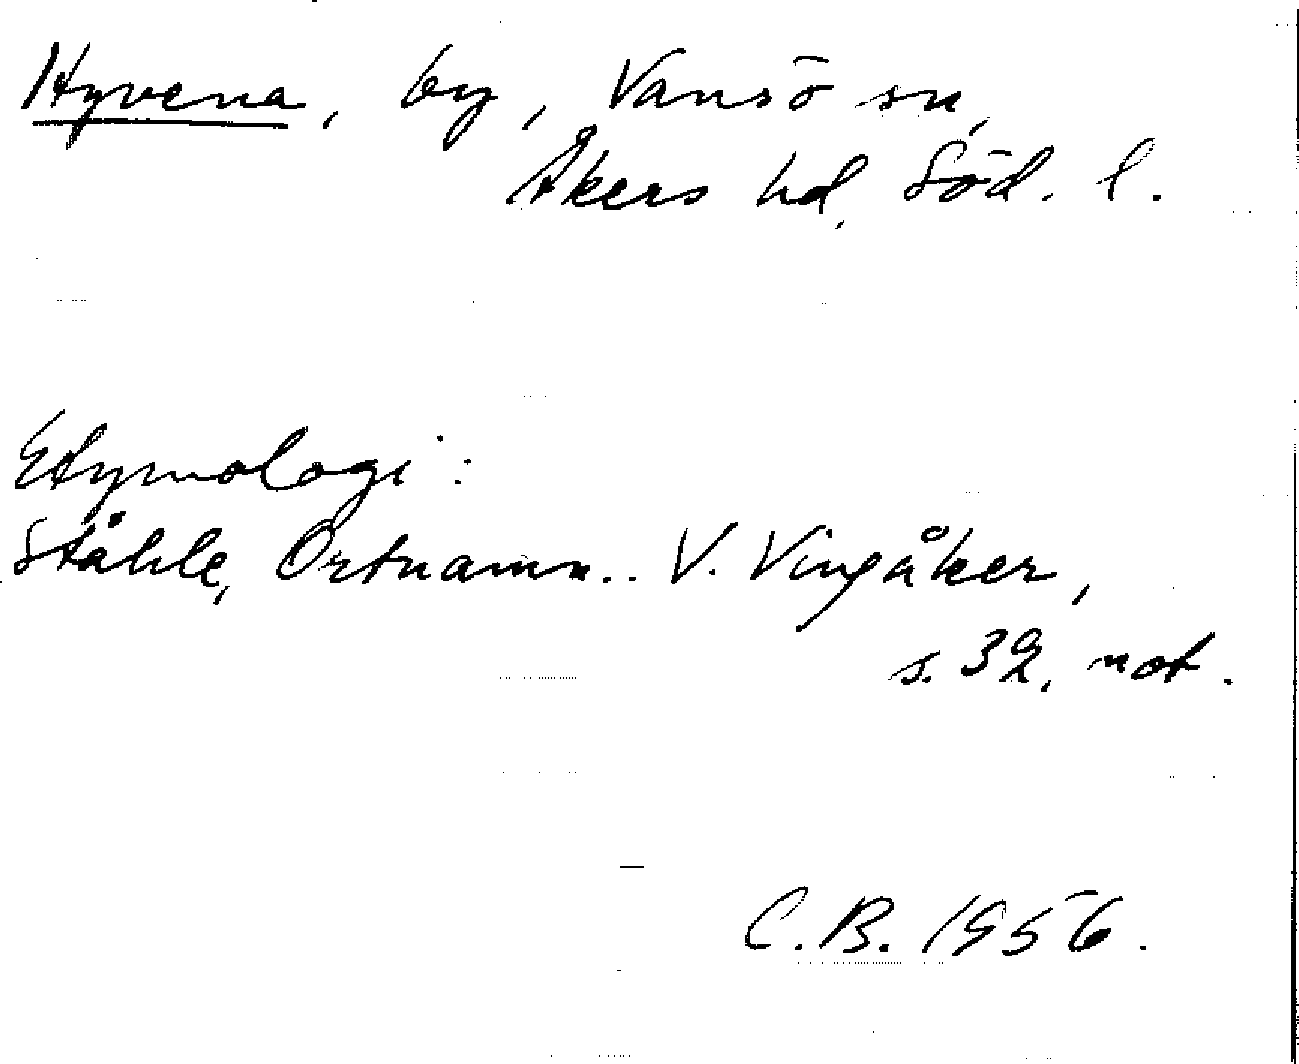 Hyvena, by, Vansö sn,
Åkers hd, Söd. l.
Etymologi:
Ståhle, Ortnamn.. V. Vingåker,
s. 32, not.
C.B. 1956.